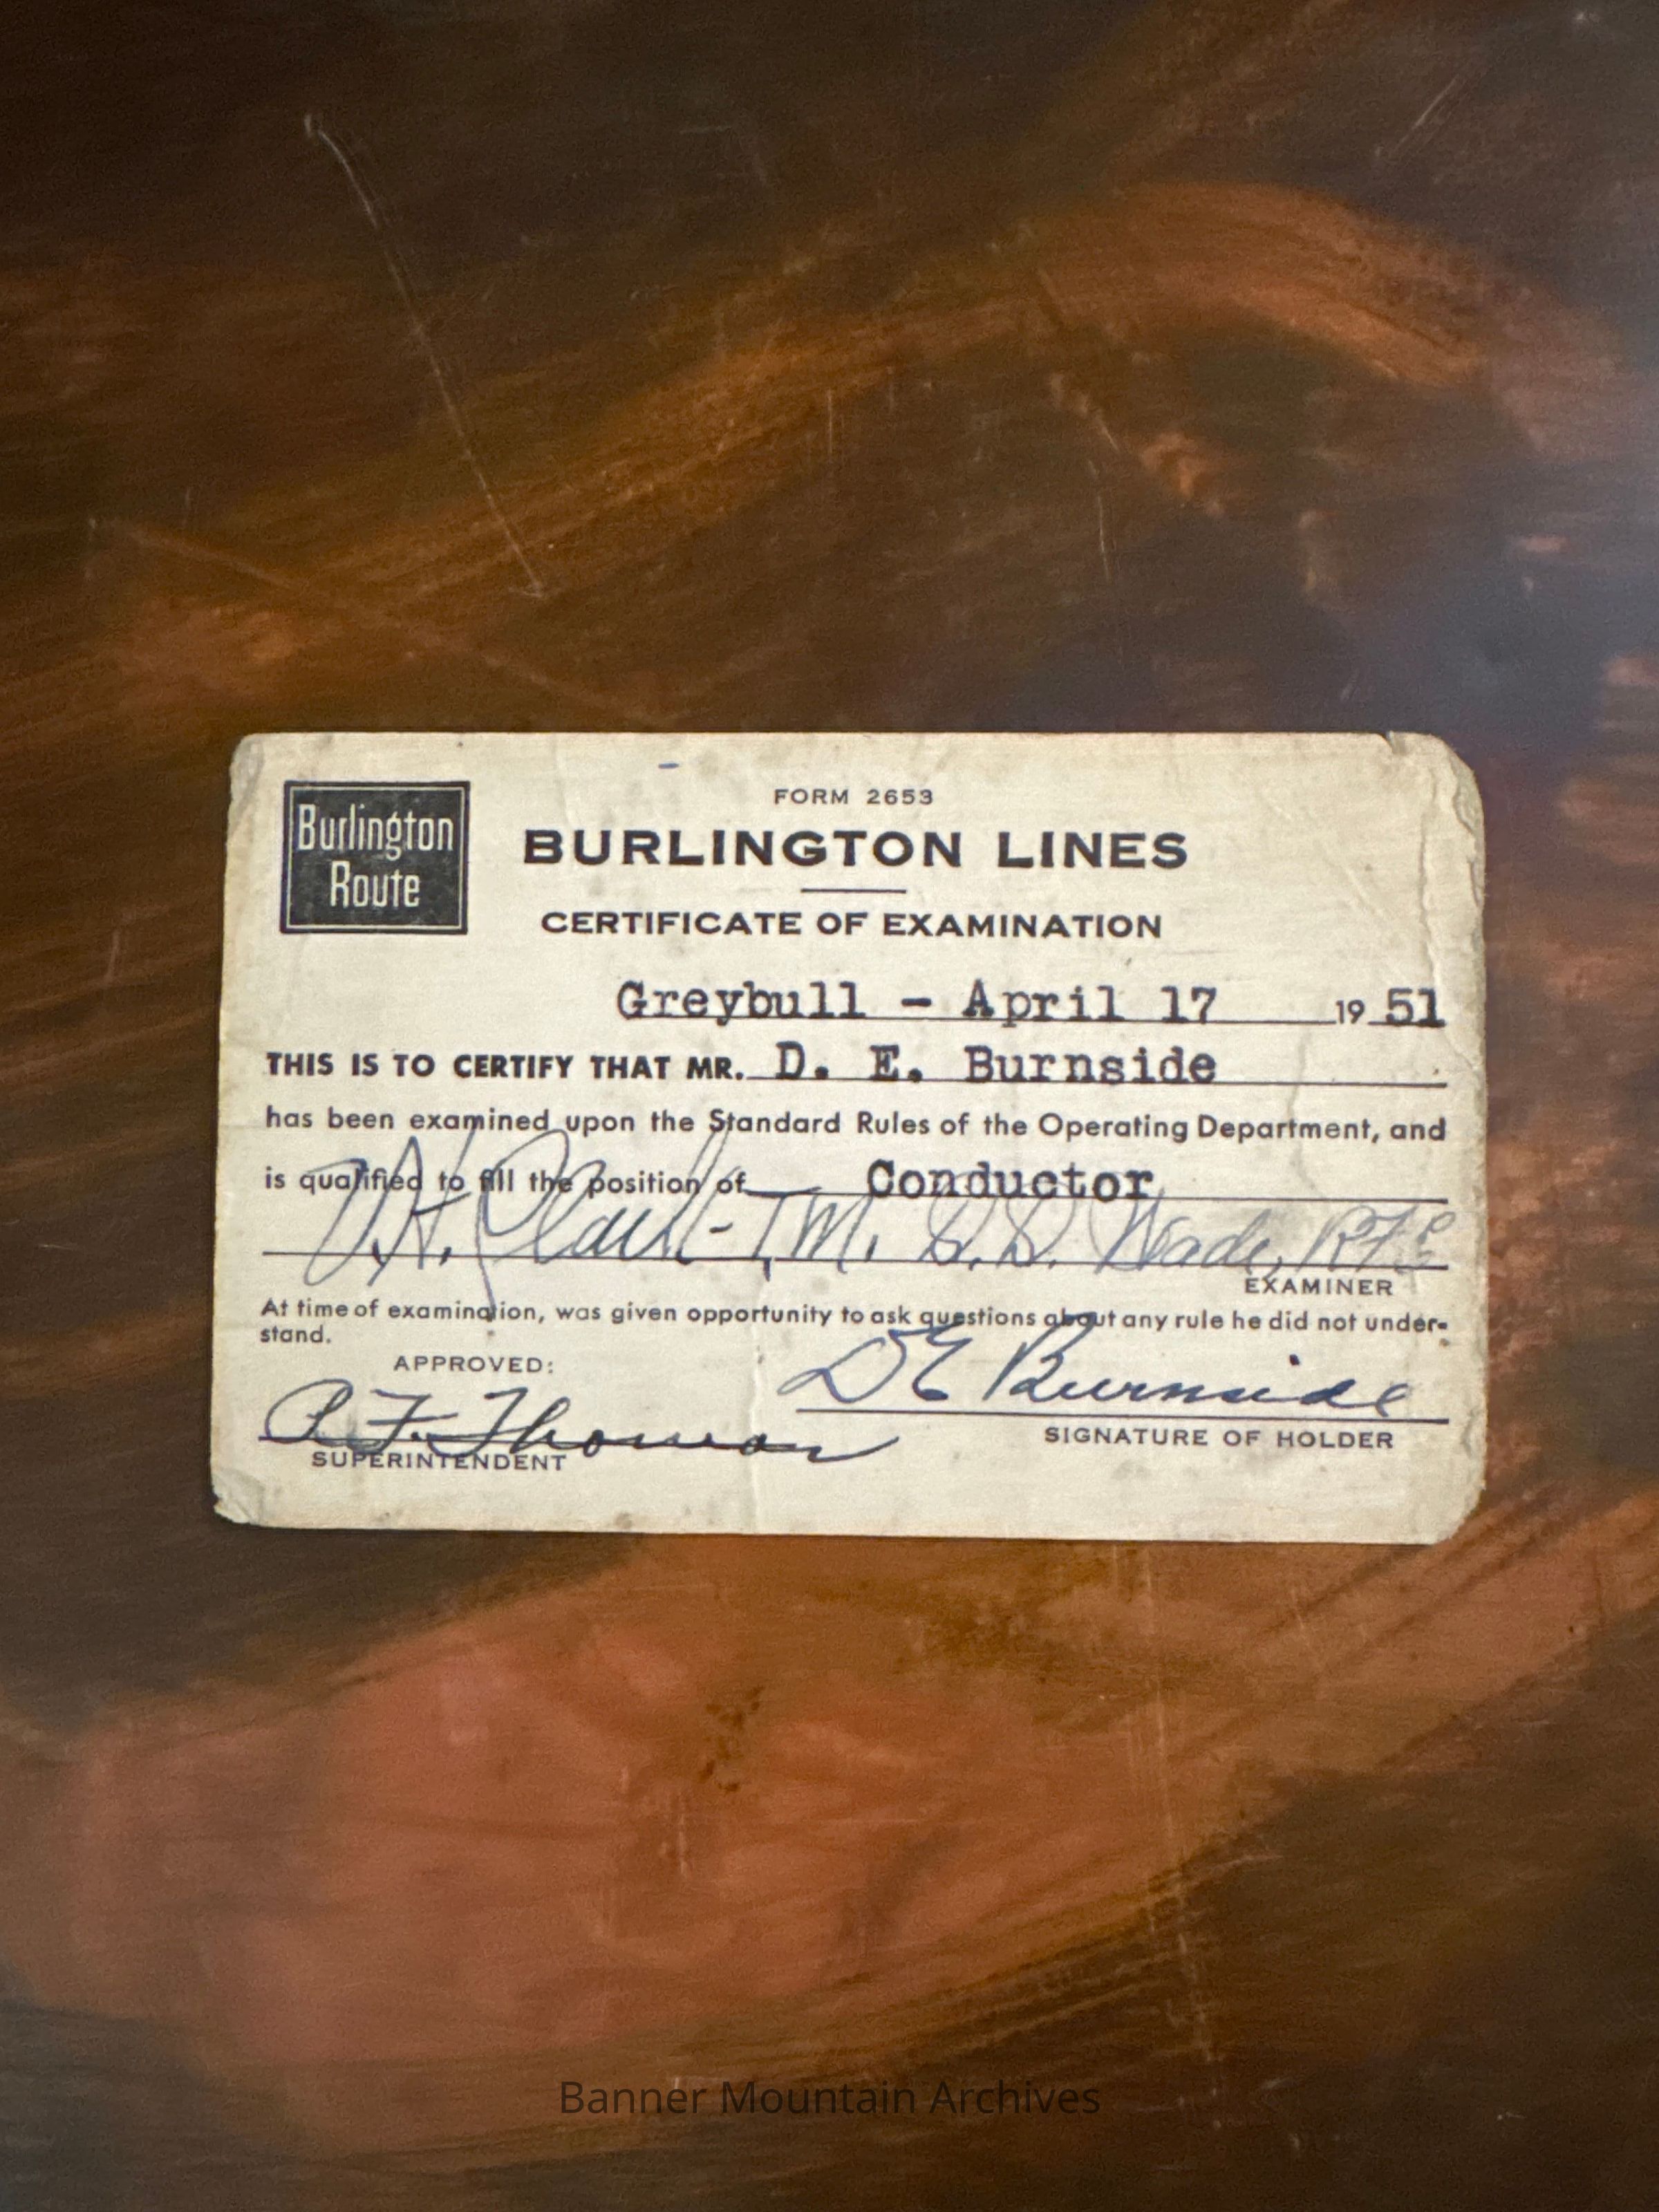 Burlington
Route
FORM 2653
BURLINGTON LINES
CERTIFICATE OF EXAMINATION
Greybull - April 17 19 51
THIS IS TO CERTIFY THAT MR. D. E. Burnside
has been examined upon the Standard Rules of the Operating Department, and
is qualified to fill the position of Conductor
T.M. Wade,
EXAMINER
At time of examination, was given opportunity to ask questions about any rule he did not under-
stand.
APPROVED:
D E Burnside
SIGNATURE OF HOLDER
SUPERINTENDENT
Banner Mountain Archives